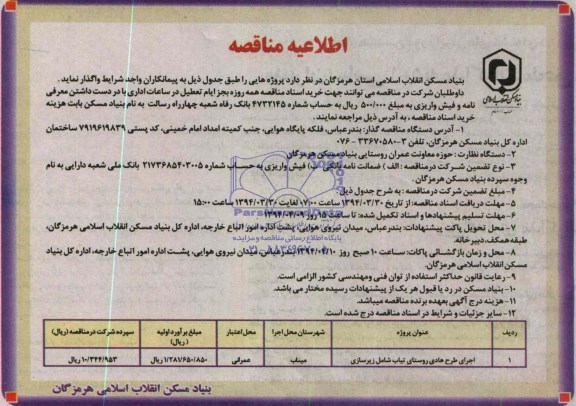 اطلاعیه مناقصه
بنیاد مسکن انقلاب اسلامی
بنیاد مسکن انقلاب اسلامی استان هرمزگان در نظر دارد پروژه هایی را طبق جدول ذیل به پیمانکاران واجد شرایط واگذار نماید .
داوطلبان شرکت در مناقصه می توانند جهت خرید اسناد مناقصه همه روزه بجز ایام تعطیل در ساعات اداری با در دست داشتن معرفی
نامه و فیش واریزی به مبلغ ۵۰۰/۰۰۰ ریال به حساب شماره ۴۷۳۲۱۴۵ بانک رفاه شعبه چهارراه رسالت به نام بنیاد مسکن بابت هزینه
خرید اسناد مناقصه ، به آدرس ذیل مراجعه نمایند .
۱- آدرس دستگاه مناقصه گذار: بندرعباس، فلکه پایگاه هوایی، جنب کمیته امداد امام خمینی، کد پستی ۷۹۱۹۶۱۹۸۳۹ ساختمان
اداره کل بنیاد مسکن هرمزگان، تلفن ۳-۳۳۶۷۰۵۸۰-۰۷۶
۲- دستگاه نظارت : حوزه معاونت عمران روستایی بنیاد مسکن هرمزگان
۳- نوع تضمین شرکت در مناقصه : الف ) ضمانت نامه بانکی ب) فیش واریزی به حساب شماره ۲۱۷۳۶۸۵۴۰۳۰۰۵ بانک ملی شعبه دارایی به نام
وجوه سپرده بنیاد مسکن هرمزگان.
۴- مبلغ تضمین شرکت در مناقصه: به شرح جدول ذیل
۵- مهلت دریافت اسناد مناقصه: از تاریخ ۱۳۹۴/۰۳/۲۰ ساعت ۰۷:۰۰ لغایت ۱۳۹۴/۰۳/۳۰ ساعت ۱۵:۰۰
۶- مهلت تسلیم پیشنهادها و اسناد تکمیل شده: تا ساعت ۱۵ روز ۱۳۹۴/۰۴/۰۹
۷- محل تحویل پاکت پیشنهادات: بندرعباس، میدان نیروی هوایی، پشت اداره امور اتباع خارجه، اداره کل بنیاد مسکن انقلاب اسلامی هرمزگان،
طبقه همکف، دبیرخانه.
۸- محل و زمان بازگشائی پاکات: ساعت ۱۰ صبح روز ۱۳۹۴/۰۴/۱۰ بندرعباس، میدان نیروی هوایی، پشت اداره امور اتباع خارجه، اداره کل بنیاد
مسکن انقلاب اسلامی هرمزگان.
۹- رعایت قانون حداکثر استفاده از توان فنی ومهندسی کشور الزامی است.
۱۰- بنیاد مسکن در رد یا قبول هر یک از پیشنهادات رسیده مختار می باشد.
۱۱- هزینه درج آگهی بعهده برنده مناقصه میباشد.
۱۲- سایر جزئیات و شرایط در اسناد مناقصه درج شده است.
ردیف عنوان پروژه شهرستان محل اجرا محل اعتبار مبلغ برآورد اولیه (ریال) سپرده شرکت در مناقصه (ریال)
۱ اجرای طرح هادی روستای تیاب شامل زیرسازی میناب عمرانی ۱/۲۸۱/۶۵۰/۸۵۰ ریال ۱۰/۳۴۴/۹۵۳ ریال
بنیاد مسکن انقلاب اسلامی هرمزگان
پایگاه اطلاع رسانی مناقصه و مزایده